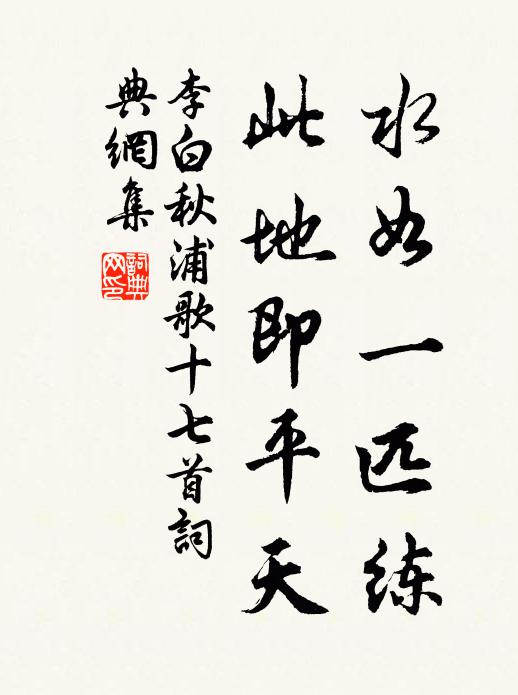 水如一匹练
此地即平天
李白秋浦歌十七首詞
典網集
詞典网印